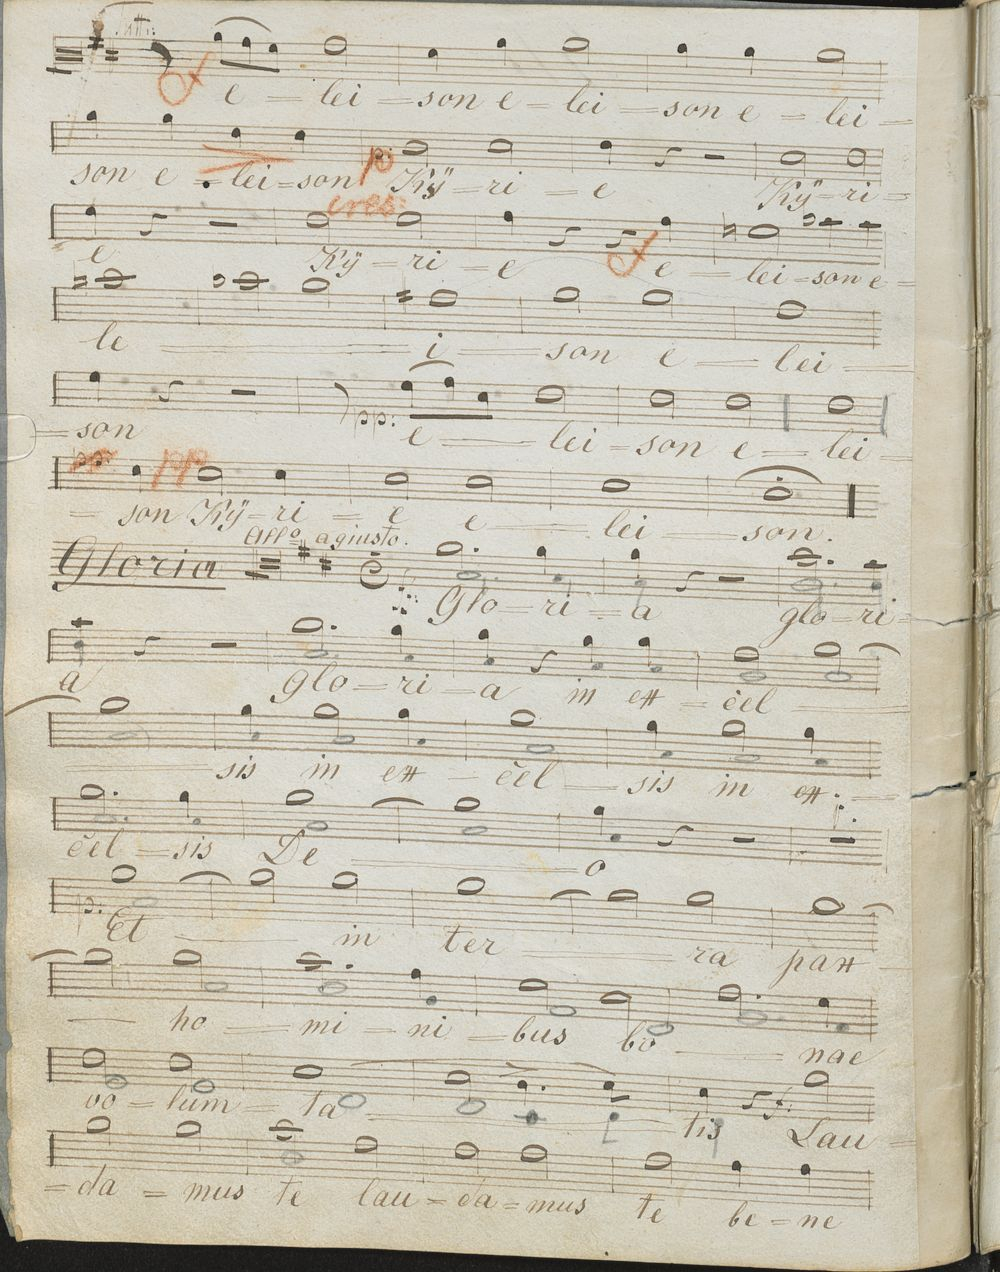 Tutti:
e – lei – son e – lei – son e – lei –
son e – lei – son Kÿ – ri – e Kÿ – ri –
p: p
cres:
e Kÿ – ri – e e – lei – son e –
le – i – son e – lei –
son pp: e – lei – son e – lei –
pp pp
son Kÿ – ri – e e – lei – son.
Allo. agiusto.
Gloria Glo – ri – a glo – ri –
a glo – ri – a in ex – cel –
sis in ex – cel – sis in ex –
cel – sis De – o
p: Et in ter – ra pax
ho – mi – ni – bus bo – nae
vo – lum – ta – tis f: Lau –
da – mus te lau – da – mus te be – ne